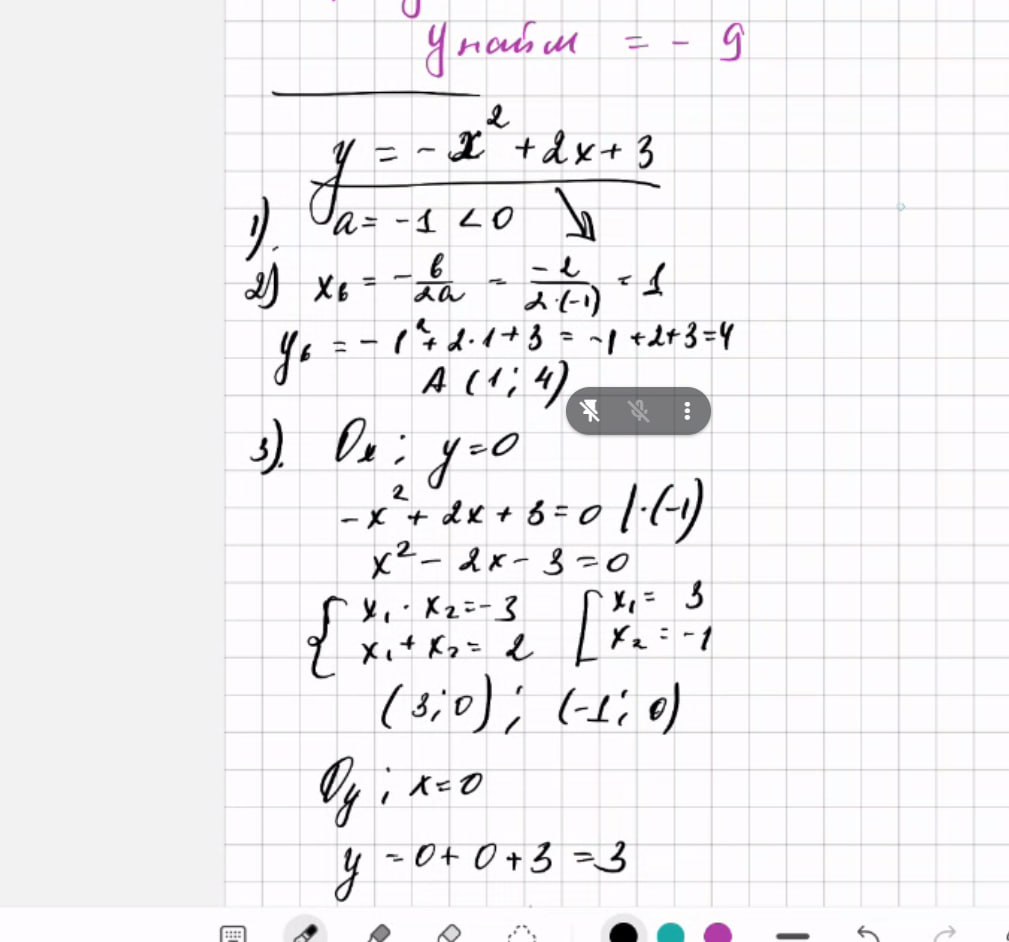 y наим = - 9
y = -x² + 2x + 3
1). a = -1 < 0
2) xв = -в/2a = -2/2·(-1) = 1
yв = -1² + 2·1 + 3 = -1 + 2 + 3 = 4
A (1; 4)
3). Ox; y = 0
-x² + 2x + 3 = 0 |·(-1)
x² - 2x - 3 = 0
{ x₁ · x₂ = -3 [ x₁ = 3
x₁ + x₂ = 2 x₂ = -1
(3; 0); (-1; 0)
Oy; x = 0
y = 0 + 0 + 3 = 3